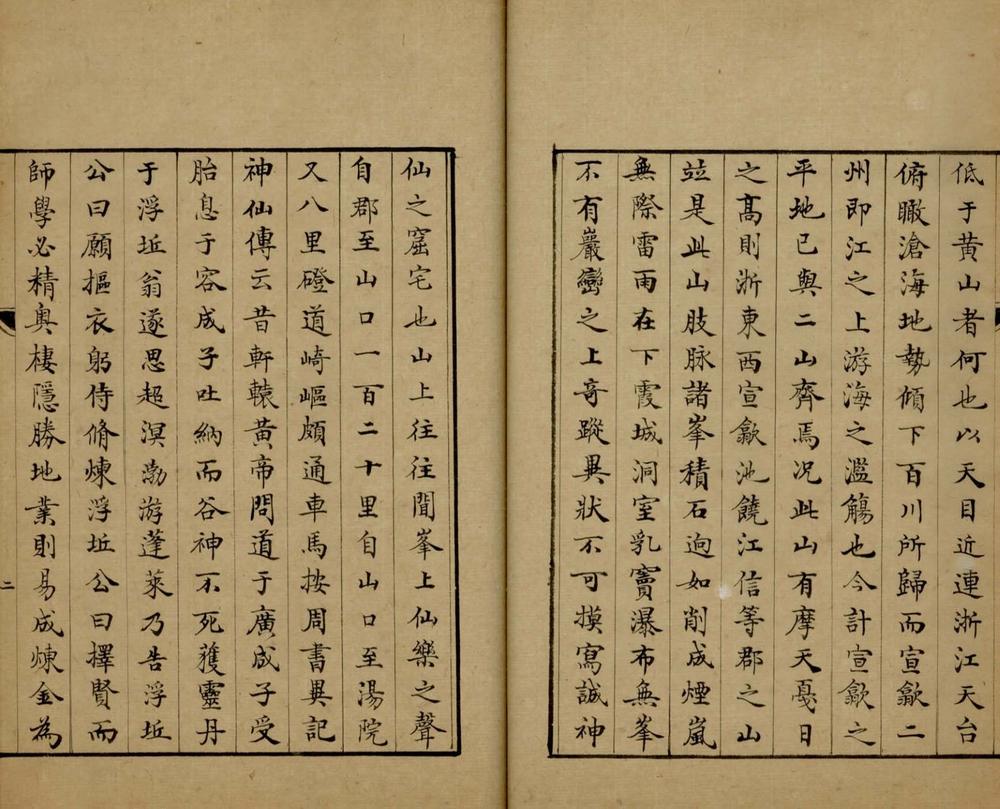 低于黄山者何也以天目近連浙江天台
俯瞰滄海地勢傾下百川所歸而宣歙二
州即江之上游海之濫觴也今計宣歙之
平地已與二山齊焉况此山有摩天戞日
之髙則浙東西宣歙池饒江信等郡之山
竝是此山肢脉諸峯積石逈如削成煙嵐
無際雷雨在下霞城洞室乳竇瀑布無峯
不有巖巒之上竒蹤異狀不可摸寫誠神
仙之窟宅也山上往往聞峯上仙樂之聲
自郡至山口一百二十里自山口至湯院
又八里磴道崎嶇頗通車馬按周書異記
神仙傳云昔軒轅黄帝問道于廣成子受
胎息于容成子吐納而谷神不死獲靈丹
于浮坵翁遂思超溟渤游蓬萊乃告浮坵
公曰願摳衣躬侍脩煉浮坵公曰擇賢而
師學必精奥棲隱勝地業則易成煉金為
二